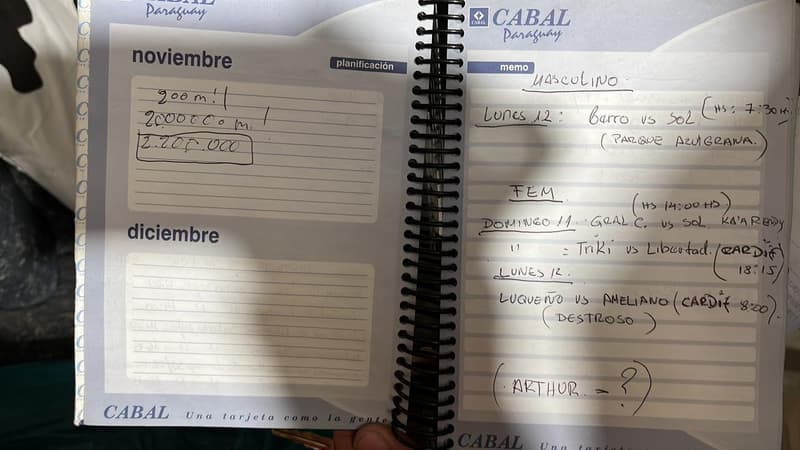 CABAL
Paraguay
noviembre
planificación
200 m!
2.200.000
diciembre
CABAL Una tarjeta como la gente
CABAL
Paraguay
memo
MASCULINO
LUNES 12: Barro vs SOL (HS: 7:30 Hs
(PARQUE AZULGRANA.)
FEM
(HS 14:00 HS)
DOMINGO 11 GRAL C. vs SOL
" = Triki vs Libertad. (CARDIF
18:15)
LUNES 12.
LUQUEÑO VS AMELIANO (CARDIF 8:00).
(DESTROSO)
(ARTHUR = ?)
CABAL Una tarjeta